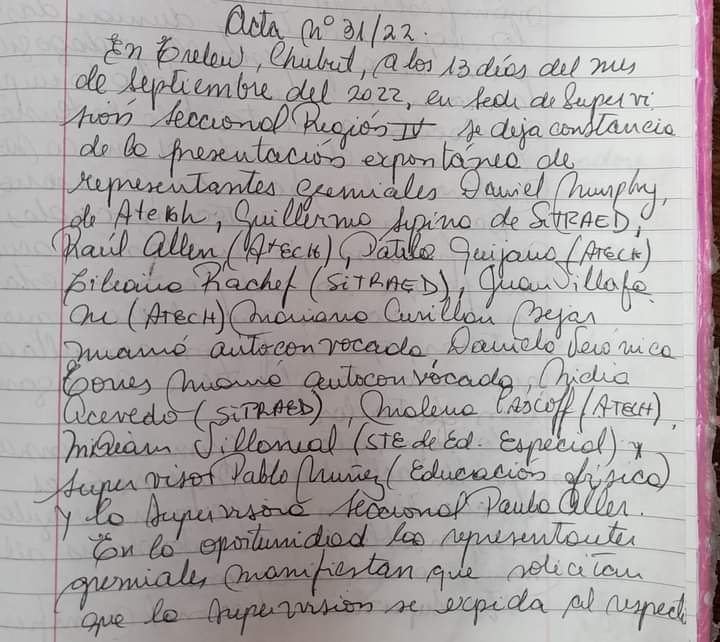 Acta Nº 31/22.
En Trelew, Chubut, a los 13 días del mes
de Septiembre del 2022, en sede de Supervi
sión Seccional Región IV se deja constancia
de la presentación expontánea de
representantes gremiales Daniel Murphy,
de Atech, Guillermo Spina de SiTRAED,
Raúl Allen (ATECH), Quijano (ATECH)
Bibiana Rachef (SiTRAED), Juan Villafa
ne (ATECH) Mariana Curillan Bejar
mamá autoconvocada Daniela Verónica
Torres mamá autoconvocada, Nidia
Acevedo (SiTRAED), Malena (ATECH),
Miriam Villarreal (STE de Ed. Especial) y
Supervisor Pablo Nuñez (Educación física)
y la Supervisora Seccional Paula Aller.
En la oportunidad las representantes
gremiales manifiestan que solicitan
que la supervisión se expida al respect